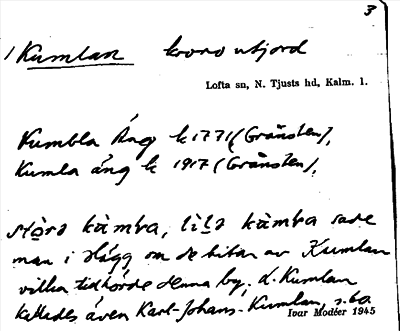 3
1 Kumlan krono utjord
Lofta sn, N. Tjusts hd, Kalm. l.
Kumbla Äng k 1771 (Gränsten),
Kumla äng k 1917 (Gränsten),
störa kàmba, lila kàmba sade
man i Hägg om de bitar av Kumlan
vilka tillhörde denna by. d. Kumlan
kallades även Karl-Johans-Kumlan, s. 60
Ivar Modéer 1945